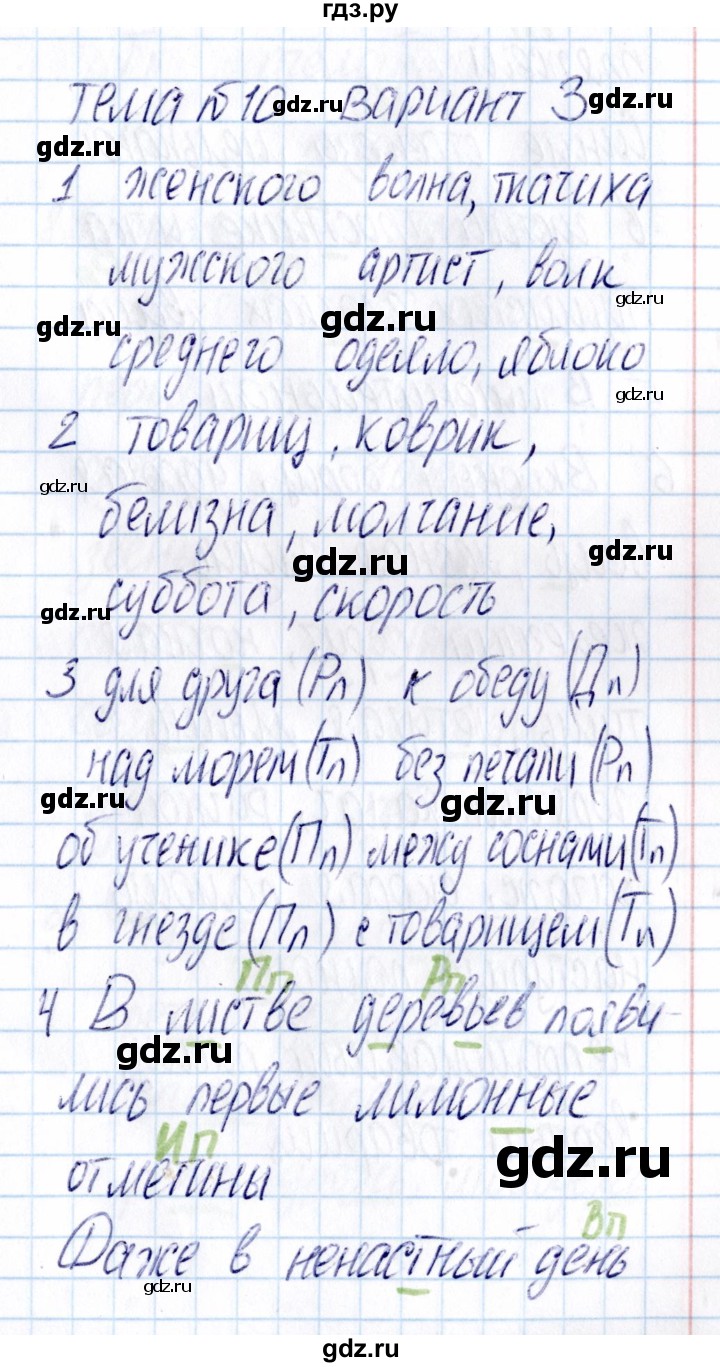 гдз.ру
тема №10 вариант 3
gdz.ru
gdz.ru
gdz.ru
1 женского волна, ткачиха
мужского артист, волк
gdz.ru
gdz.ru
gdz.ru
среднего одеяло, яблоко
gdz.ru
2 товарищ, коврик,
gdz.ru
белизна, молчание,
gdz.ru
gdz.ru
суббота, скорость
gdz.ru
3 для друга (Рп) к обеду (Дп)
над морем (Тп) без печали (Рп)
gdz.ru
gdz.ru
об ученике (Пп) между соснами (Тп)
в гнезде (Пп) с товарищем (Тп)
Пп Рп
4 В листве деревьев появи-
gdz.ru
лись первые лимонные
Ип
gdz.ru
отметины
Вп
Даже в ненастный день
gdz.ru
gdz.ru